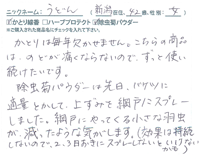 ニックネーム: うどん 新潟 在住, 42 歳, 性別: 女
☑かとり線香 □ハーブプロテクト ☑除虫菊パウダー
かとりは毎年欠かせません。こちらの商品
は、のどが痛くならないので、ずっと使い
続けたいです。
除虫菊パウダーは先日、バケツに
適量とかして、上ずみを網戸にスプレー
しました。網戸にやってくる小さな羽虫
が、減ったような気がします。(効果は持続
しないので、2、3日おきにスプレーしないといけない
かも)